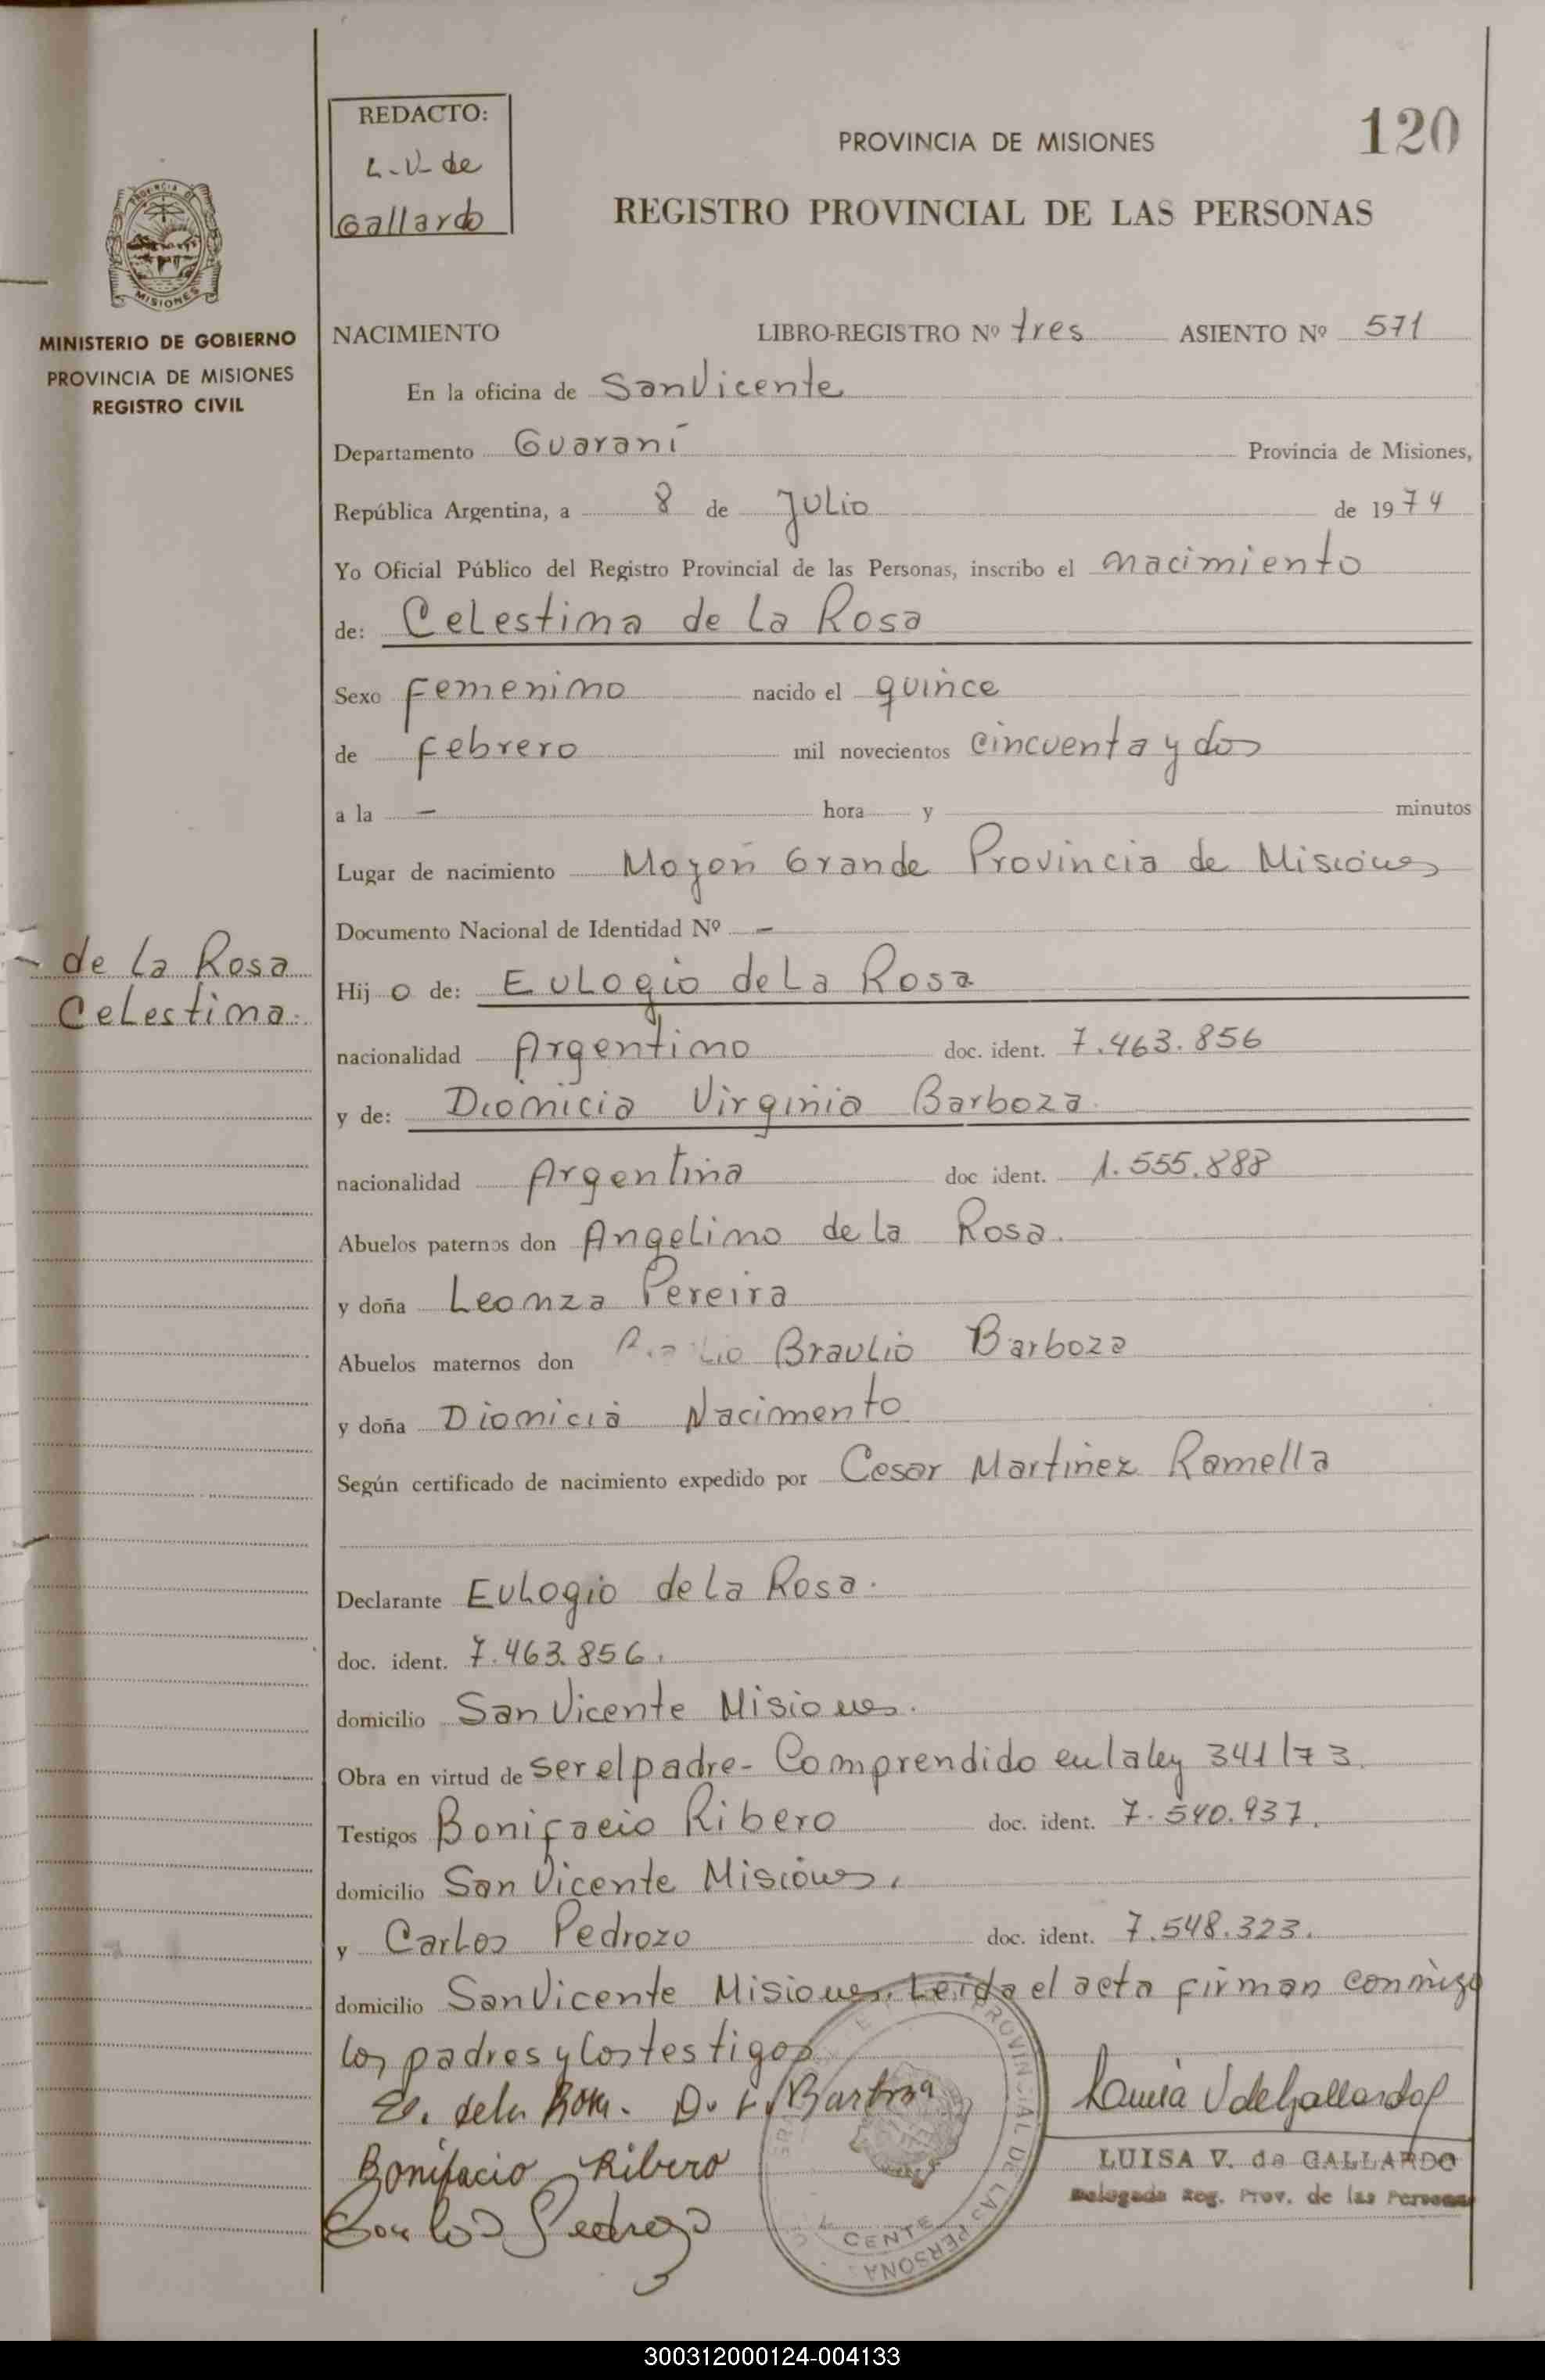 120
REDACTO:
L-V- de
Gallardo
PROVINCIA DE MISIONES
REGISTRO PROVINCIAL DE LAS PERSONAS
MISIONES
MINISTERIO DE GOBIERNO
PROVINCIA DE MISIONES
REGISTRO CIVIL
NACIMIENTO LIBRO-REGISTRO Nº tres ASIENTO Nº 571
En la oficina de San Vicente
Departamento Guaraní Provincia de Misiones,
República Argentina, a 8 de Julio de 1974
Yo Oficial Público del Registro Provincial de las Personas, inscribo el nacimiento
de: Celestina de La Rosa
Sexo Femenino nacido el quince
de Febrero mil novecientos cincuenta y dos
a la - hora y minutos
Lugar de nacimiento Mojón Grande Provincia de Misiones
Documento Nacional de Identidad Nº -
de La Rosa
Celestina.
Hij o de: Eulogio de La Rosa
nacionalidad Argentino doc. ident. 7.463.856
y de: Dionicia Virginia Barboza
nacionalidad Argentina doc ident. 1.555.888
Abuelos paternos don Angelino de la Rosa.
y doña Leonza Pereira
Abuelos maternos don Braulio Barboza
y doña Dionicia Nacimento
Según certificado de nacimiento expedido por Cesar Martinez Ramella
Declarante Eulogio de La Rosa.
doc. ident. 7.463.856.
domicilio San Vicente Misiones.
Obra en virtud de ser el padre- Comprendido en la ley 341/73.
Testigos Bonifacio Ribero doc. ident. 7.540.937.
domicilio San Vicente Misiones.
y Carlos Pedrozo doc. ident. 7.548.323.
domicilio San Vicente Misiones. Leida el acta firman conmigo
los padres y los testigos
E. de la Rosa. D. V. Barboza
Bonifacio Ribero
Carlos Pedrozo
LUISA V. de GALLARDO
Delegada Reg. Prov. de las Personas
PROVINCIAL DE LAS PERSONAS
300312000124-004133